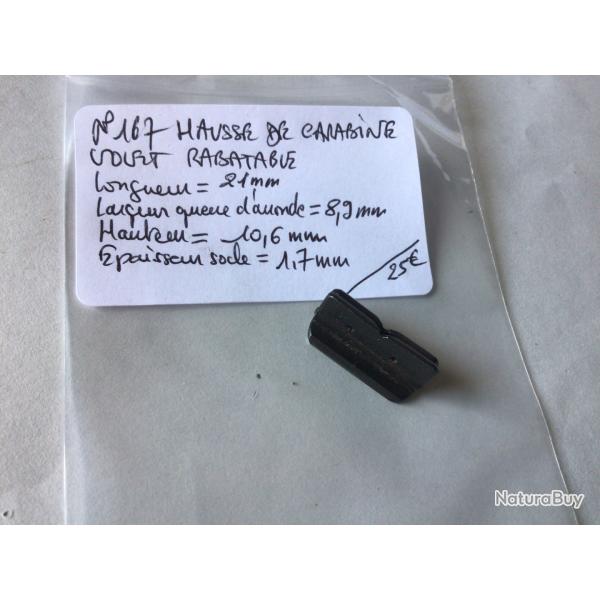 N°167 HAUSSE DE CARABINE
VOLET RABATABLE
Longueur = 21mm
Largeur queue d'aronde = 8,9mm
Hauteur = 10,6mm
Epaisseur socle = 1,7mm
25€
NaturaBuy